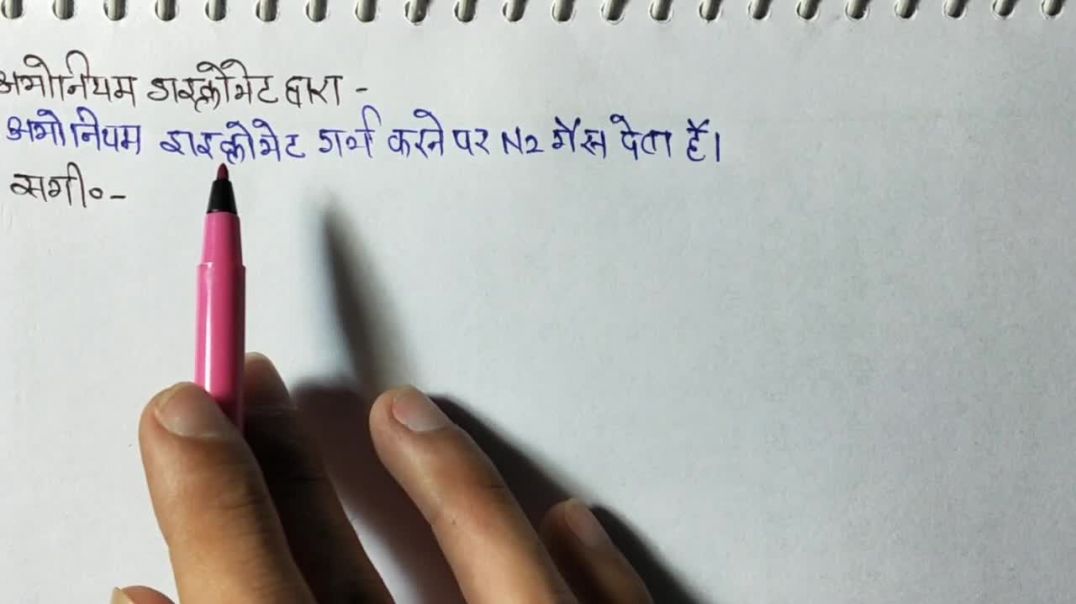 अमोनियम डाइक्रोमेट द्वारा -
अमोनियम डाइक्रोमेट गर्म करने पर N2 गैस देता हैं।
समी०-